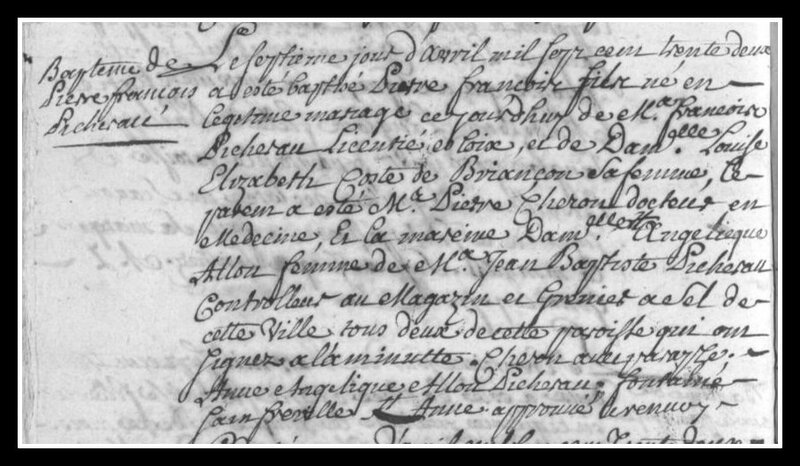 Baptême de
Pierre francois
Picherau
Le septieme jour d'Avril mil sept cent trente deux
a esté baptisé Pierre francois fils né en
legitime mariage cejourdhuy de Mr. francois
Picherau Licentié es loix, et de Dam.elle Louise
Elizabeth Coste de Briançon sa femme, le
parein a esté Mr. Pierre Cheron docteur en
Medecine, Et la mareine Dam.elle Angelicque
Allon femme de Mr. Jean Baptiste Picherau
Controlleur au Magazin et Grenier a Sel de
cette Ville tous deux de cette paroisse qui ont
signez a la minutte. Cheron
Anne Angelique Allon Picherau, fontaine
Anne approuvé